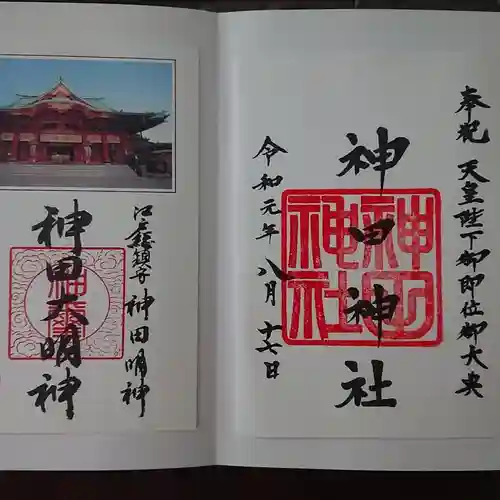 奉祝 天皇陛下御即位御大典
神田神社
令和元年八月十七日
江戸総鎮守 神田明神
神田大明神